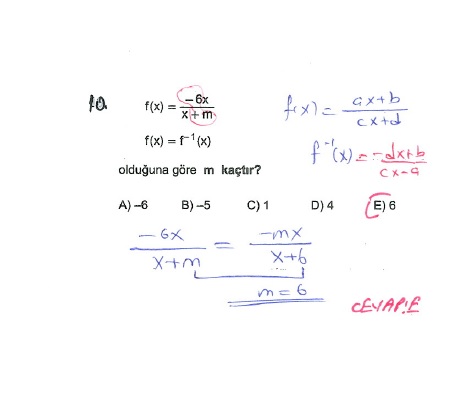 10.
f(x) = -6x / x + m
f(x) = f⁻¹(x)
olduğuna göre m kaçtır?
A) -6 B) -5 C) 1 D) 4 E) 6
f(x) = ax+b / cx+d
f⁻¹(x) = -dx+b / cx-a
-6x / x+m = -mx / x+6
m = 6
CEVAP:E